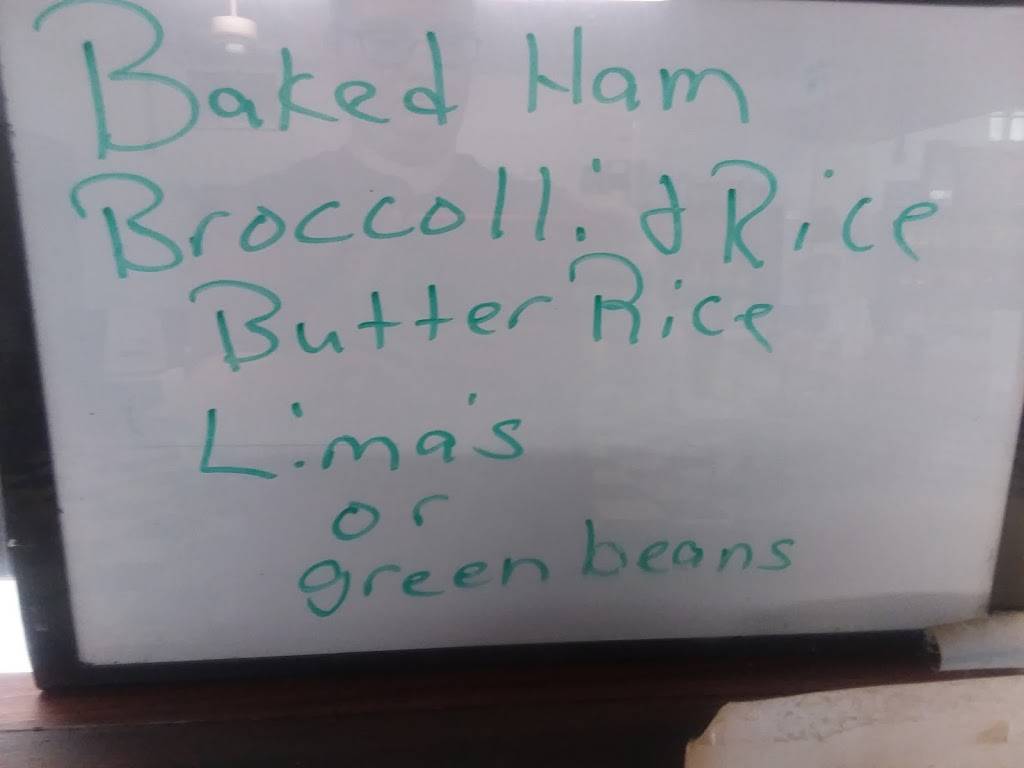 Baked Ham
Broccolli & Rice
Butter Rice
Lima's
or
green beans